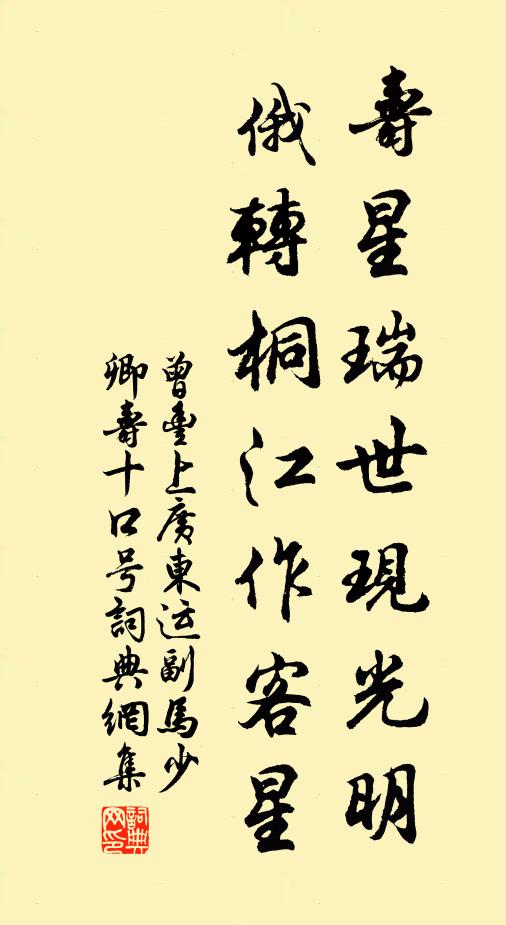 壽星瑞世現光明
俄轉桐江作客星
曾豐上廣東运副馬少
卿壽十口号詞典網集
詞典網印